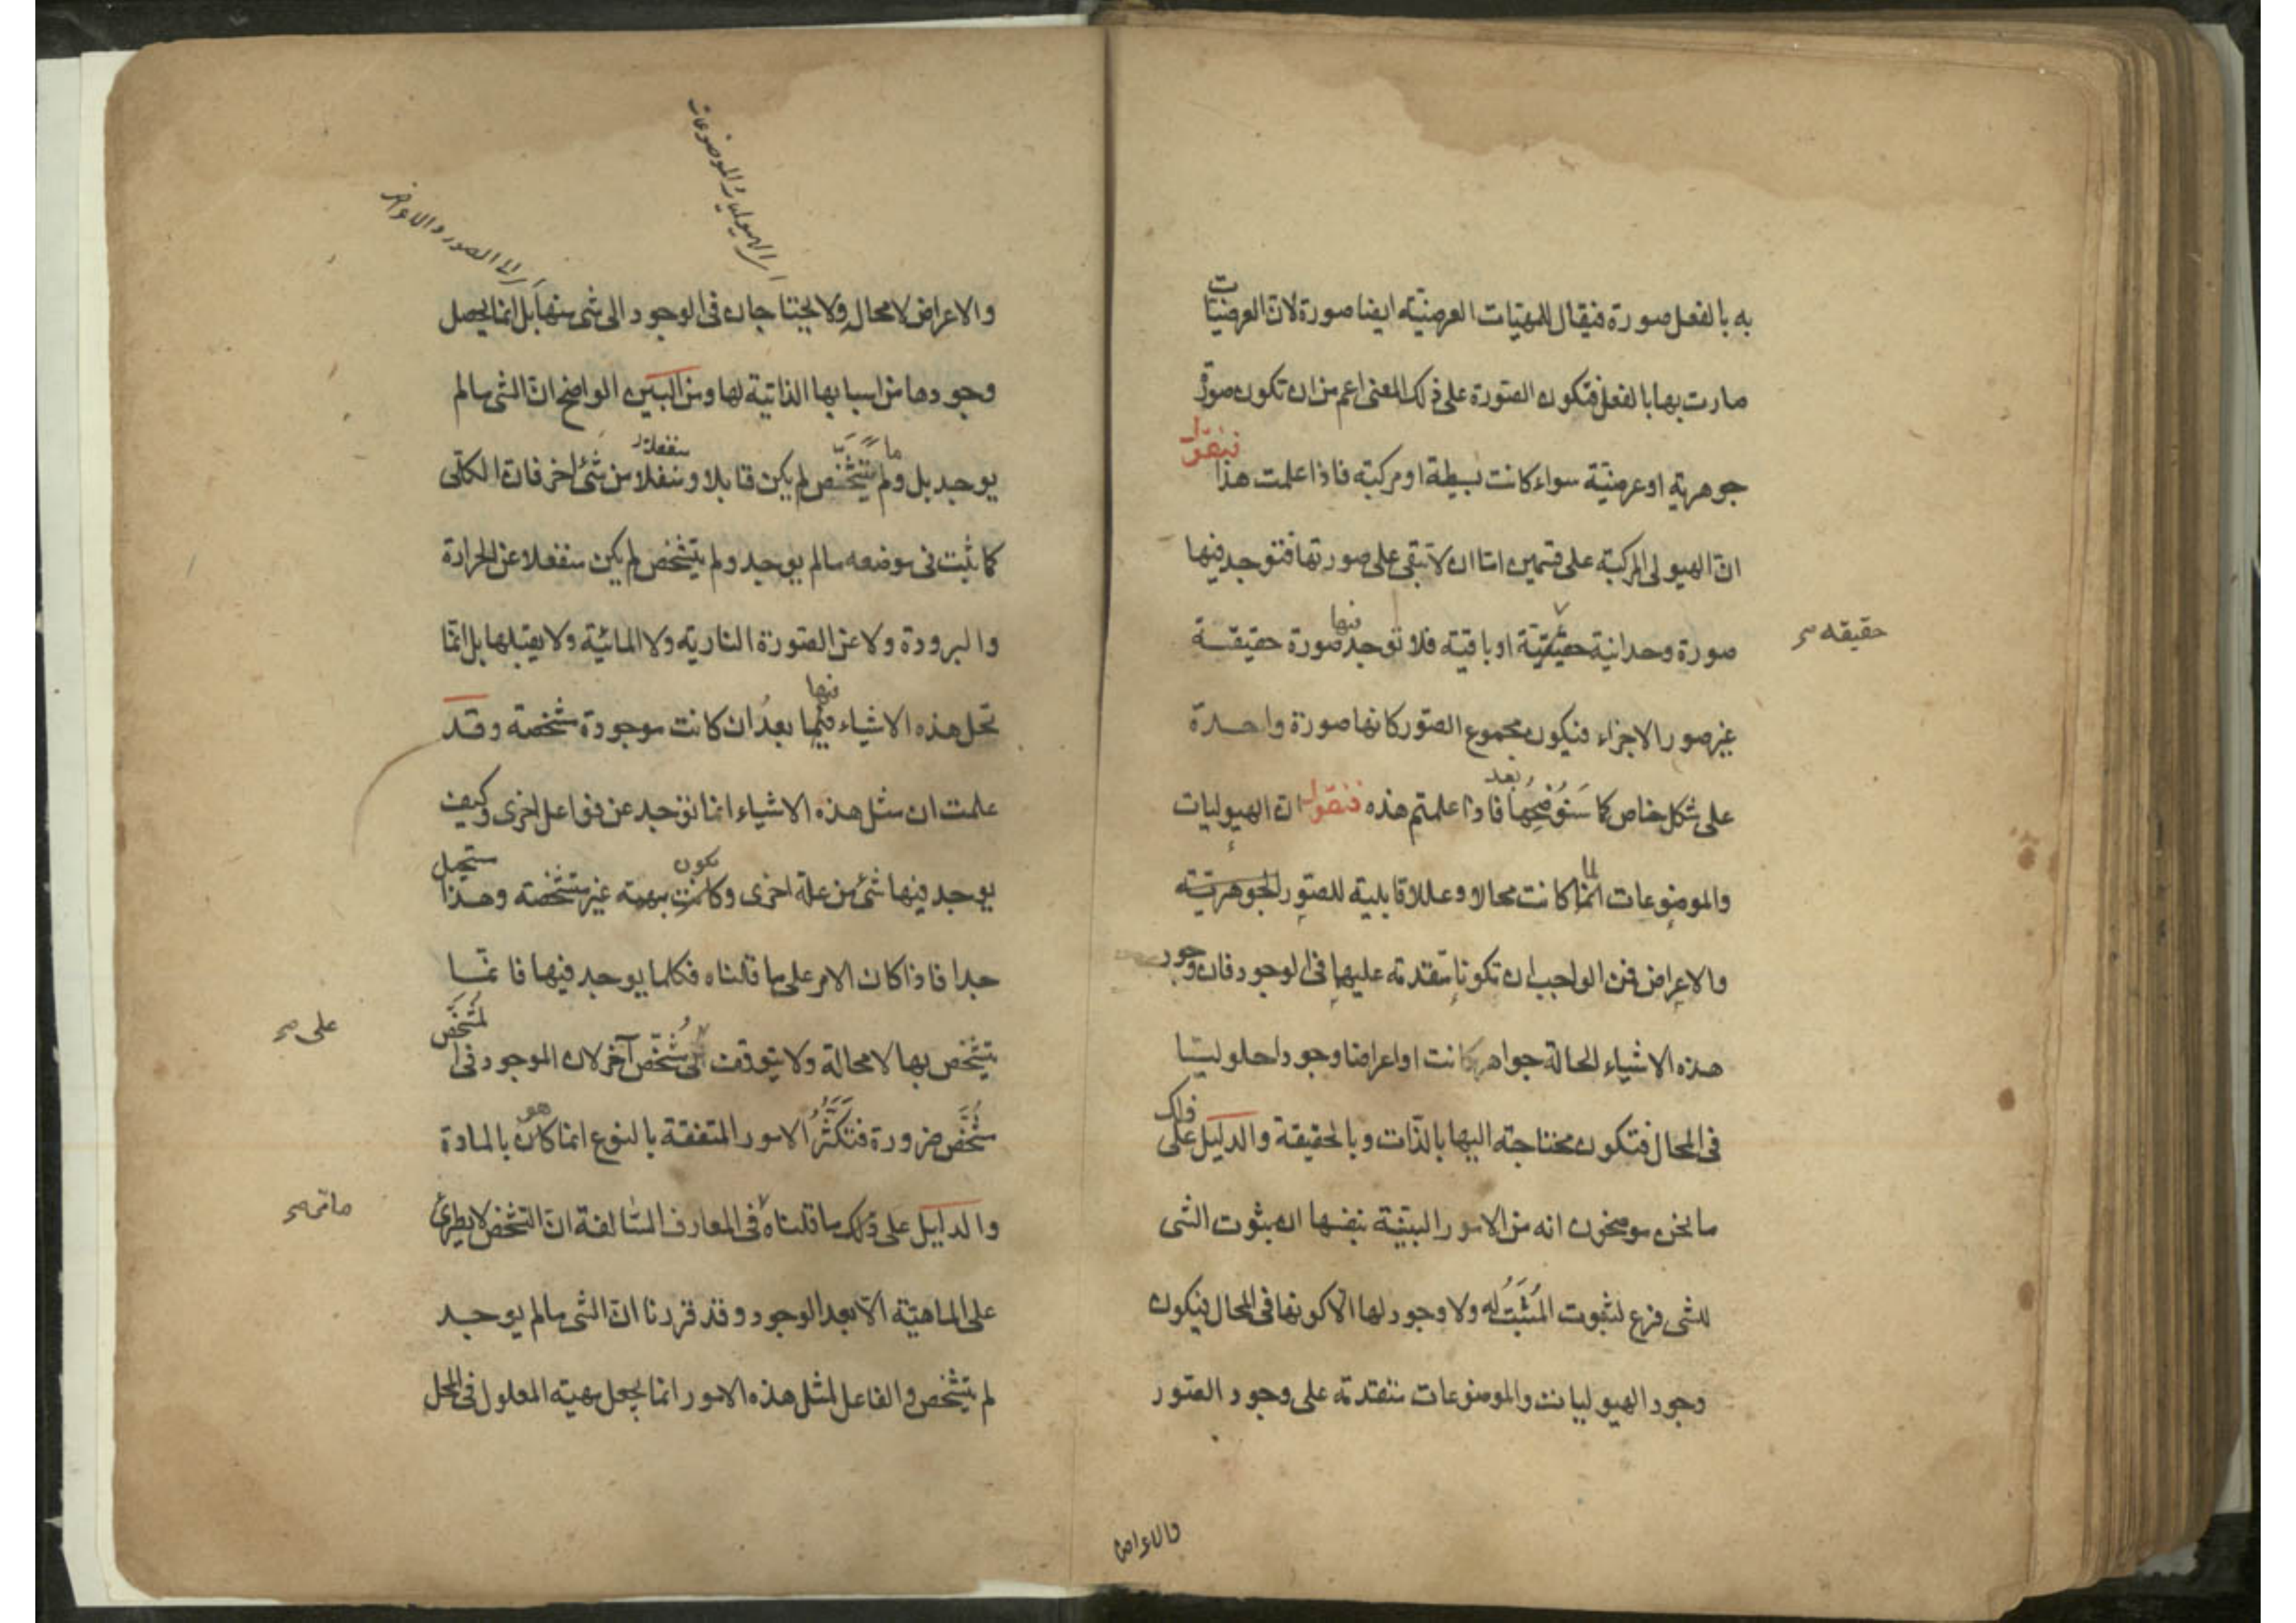 به بالفعل صورة فيقال للمهيّات العرضيّة ايضا صورة لان العرضيّات
صارت بها بالفعل فتكون الصّورة على ذلك المعنى اعم من ان تكون صورة
جوهرية او عرضيّة سواء كانت بسيطة او مركبة فاذا علمت هذا فنقول
انّ الهيولى المركبة على قسمين امّا ان لا تبقى على صورتها فتوجد فيها
صورة وحدانية حقيقيّة او باقية فلا توجد فيها صورة حقيقة
حقيقه صح
غير صور الاجزاء فيكون مجموع الصّور كانها صورة واحدة
على شكل خاص كما سَنُوُضِحُها بعد فاذا علمتم هذه فنقول انّ الهيوليات
والموضوعات لما كانت محالا وعللا قابلية للصّور الجوهريّة
والاعراض فمن الواجب ان تكونا متقدمة عليها فى الوجود فان وجود
هذه الاشياء الحالة جواهر كانت او اعراضا وجودا حلوليّا
فى المحال فتكون محتاجة اليها بالذّات وبالحقيقة والدليل على ذلك
ما نحن موضحون انه من الامور البيّنة بنفسها ان ثبوت الشى
للشى فرع لثبوت المُثبَتُ له ولا وجود لها الّا كونها فى المحال فيكون
وجود الهيوليات والموضوعات متقدمة على وجود الصّور
والاعراض
اى الهيوليات والموضوعات
اى الى الصور والاعراض
والاعراض لا محال ولا يحتاجان فى الوجود الى شى منها بل انّما يحصل
وجودها من اسبابها الذاتية لها ومن البيّن الواضح انّ الشى ما لم
يوجد بل وما لم يتشخّص لم يكن قابلا ومنفعلا من شئ اخر فانّ الكلّى
كما ثبت فى موضعه ما لم يوجد ولم يتشخّص لم يكن منفعلا عن الحرارة
والبرودة ولا عن الصّورة النارية ولا المائيّة ولا يقبلها بل انّما
تحل هذه الاشياء فيها بعد ان كانت موجودة مشخصة وقد
علمت ان مثل هذه الاشياء انما توجد عن فواعل اخرى وكيف
يوجد فيها شئ من علة اخرى وتكون مبهمة غير متشخّصة وهذا مستحيل
جدا فاذا كان الامر على ما قلناه فكلما يوجد فيها فانّما
يتشخّص بها لا محالة ولا يتوقف مُشخّص آخر لان الموجود فى المتشخّص
على صح
مُشخَّص ضرورة فتكثّر الامور المتفقة بالنوع انما هو بالمادة
والدليل على ذلك ما قلناه فى المعارف السّالفة انّ التّشخّص لا يطرئ
على الماهيّة الّا بعد الوجود وقد قررنا انّ الشى ما لم يوجد
لم يتشخّص والفاعل لمثل هذه الامور انما يجعل مهية المعلول فى المحل